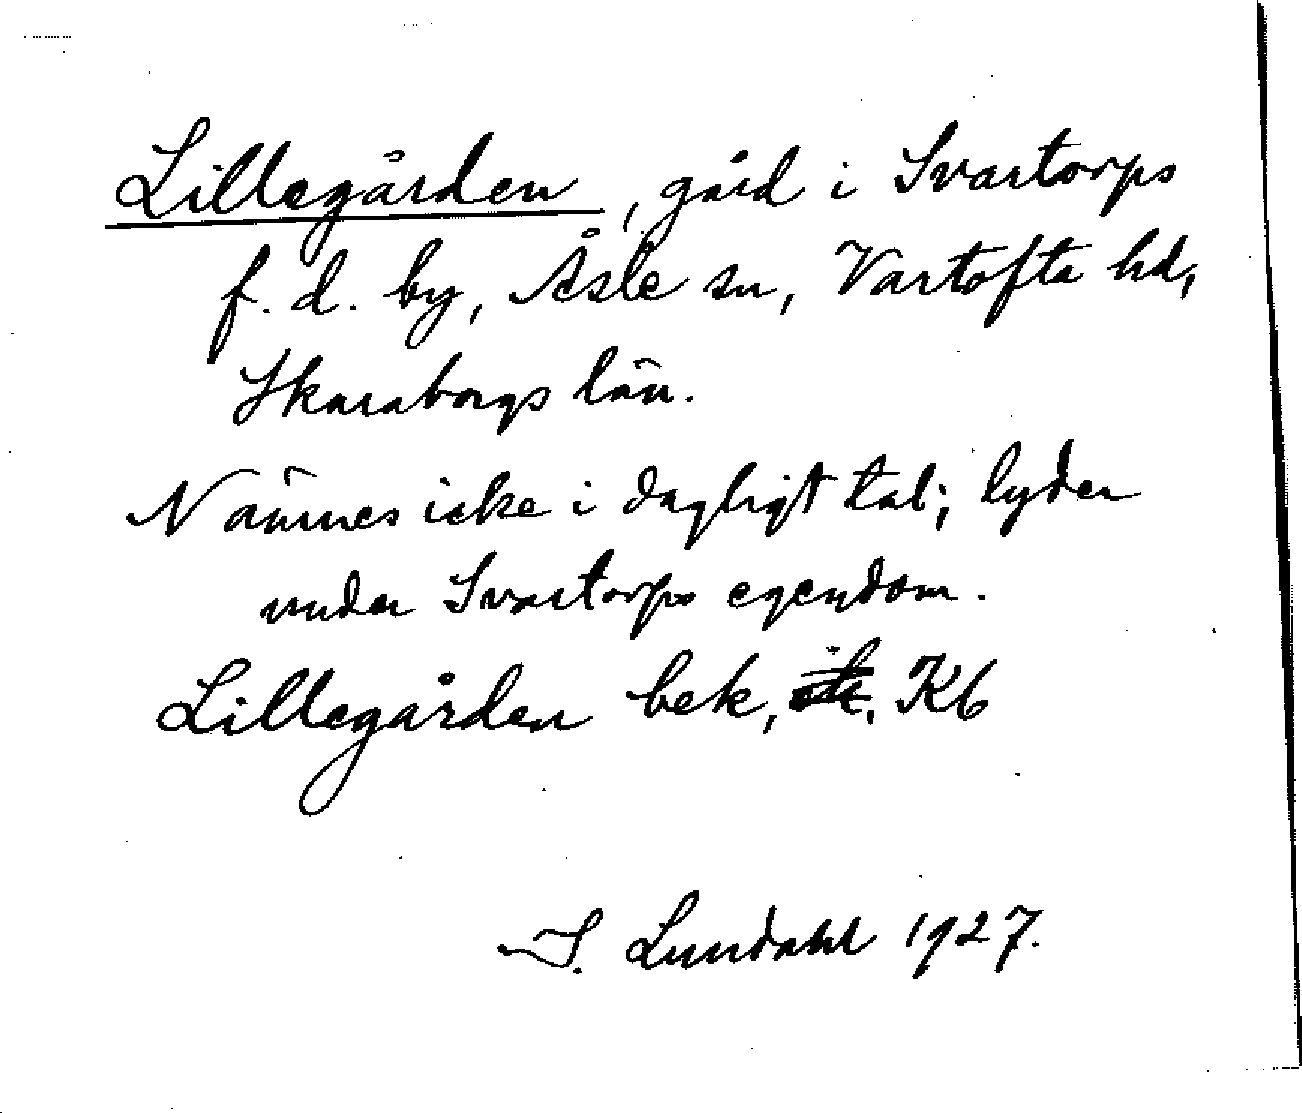 Lillegården, gård i Svartorps
f. d. by, Åsle sn, Vartofta hd,
Skaraborgs län.
Nämnes icke i dagligt tal; lyder
under Svartorps egendom.
Lillegården bek, Kb
I. Lundahl 1927.